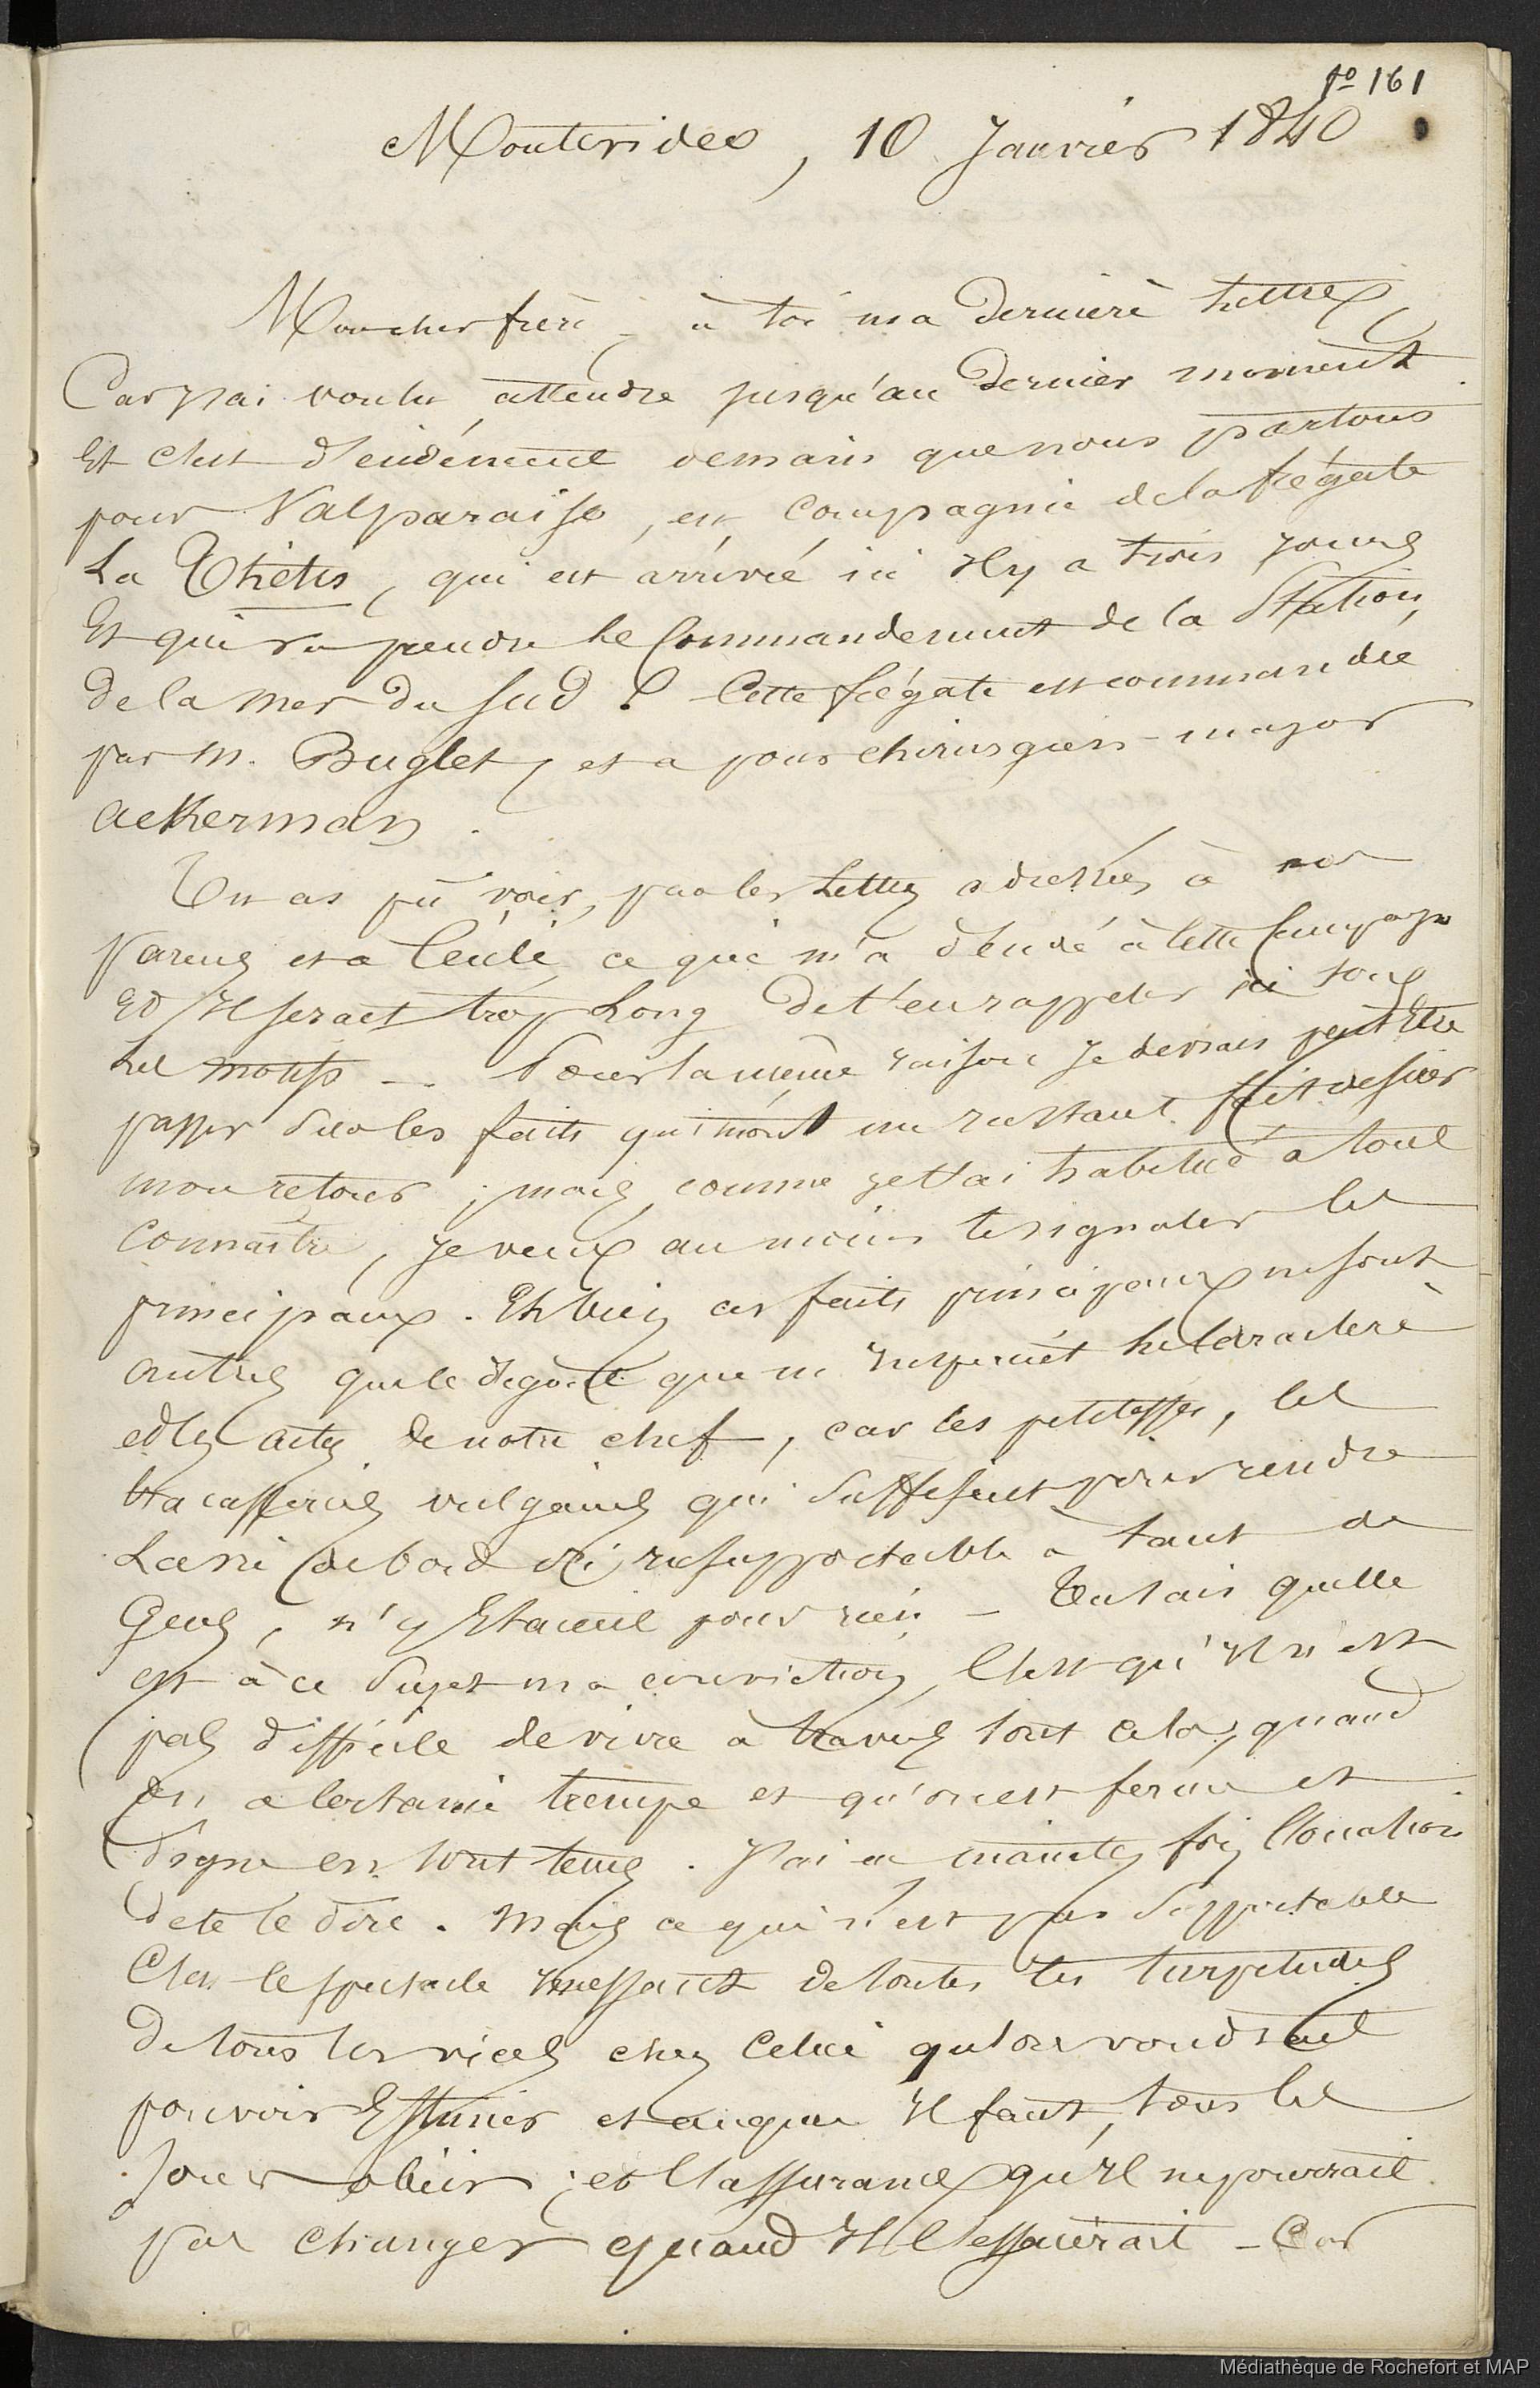 fo 161
Montevideo, 10 Janvier 1840
Mon cher frère - à toi ma dernière lettre,
Car j'ai voulu attendre jusqu'au dernier moment
Et c'est décidément demain que nous partons
pour Valparaiso, en compagnie de la frégate
La Thétis, qui est arrivée ici il y a trois jours
Et qui va prendre le Commandement de la Station
De la mer du Sud. Cette frégate est commandée
par M. Buglet, et a pour chirurgien-major
Ackerman.
Tu as pû voir, par les lettres adressées à nos
parens et à ce qui m'a à cette Campagne
Et Il serait trop Long de t'en rappeler ici tous
Les motifs - Pour la même raison je devrais peut-être
passer sur les faits qui m'ont un instant fait désirer
mon retour ; mais, comme je t'ai habitué à tout
Connaître, je veux au moins te signaler les
principaux. Eh bien ces faits principaux ne sont
autres que le dégoût que m'inspirait le Caractère
et les actes de notre chef, car les petitesses, les
tracasseries vulgaires qui suffisent pour rendre
La vie (de bord ici) insupportable à tant de
Gens, n'y étaient pour rien - Tu sais quelle
est à ce sujet ma conviction, C'est qu'il n'est
pas difficile de vivre à travers tout cela, quand
on a certaine trempe et qu'on est ferme et
digne en tout tems. J'ai eu maintes fois l'occasion
de te le dire. Mais ce qui n'est pas supportable
C'est le spectacle incessant de toutes les turpitudes
De tous les vices chez celui qu'on voudrait
pouvoir Estimer et auquel il faut, tous les
Jours obéir ; et l'assurance qu'il ne pourrait
pas changer quand Il l'essaierait - Car
Médiathèque de Rochefort et MAP